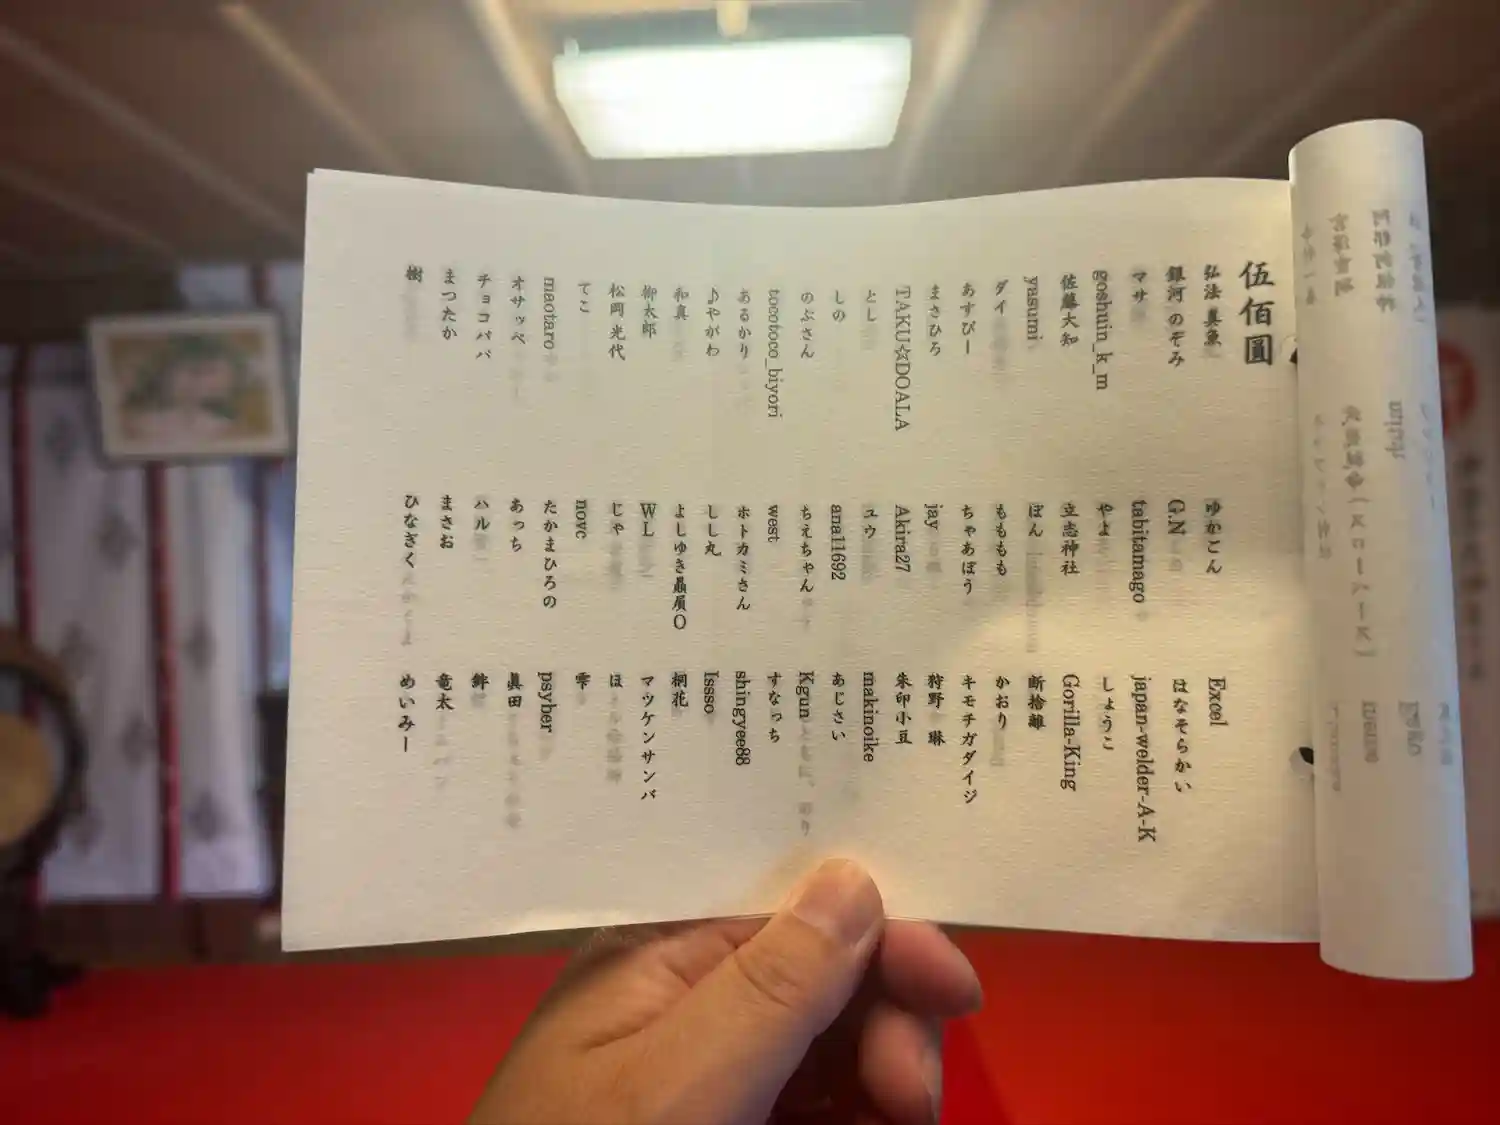 伍佰圓
弘法 真魚
銀河 のぞみ
マサ
goshuin_k_m
佐藤大知
yasumi
ダイ
あすぴー
まさひろ
とし
TAKU☆DOALA
しの
のぶさん
tocotoco_biyori
あるかり
♪やがわ
和真
柳太郎
松岡 光代
てこ
maotaro
オサッペ
チョコパパ
まつたか
樹
ゆかどん
G.N
tabitamago
やま
立志神社
ぽん
ももも
ちゃあぼう
jay
Akira27
ユウ
ana11692
ちえちゃん
west
ホトカミさん
しし丸
よしゆき贔屓O
WL
じゃ
novc
たかまひろの
あっち
ハル
まさお
ひなぎく
Excel
はなそらかい
japan-welder-A-K
しょうこ
Gorilla-King
断捨離
かおり
キモチガダイジ
狩野 琳
朱印小豆
makinoike
あじさい
Kgun
すなっち
shingyee88
Issso
桐花
マツケンサンバ
ほ
雫
psyber
眞田
絆
竜太
めいみー